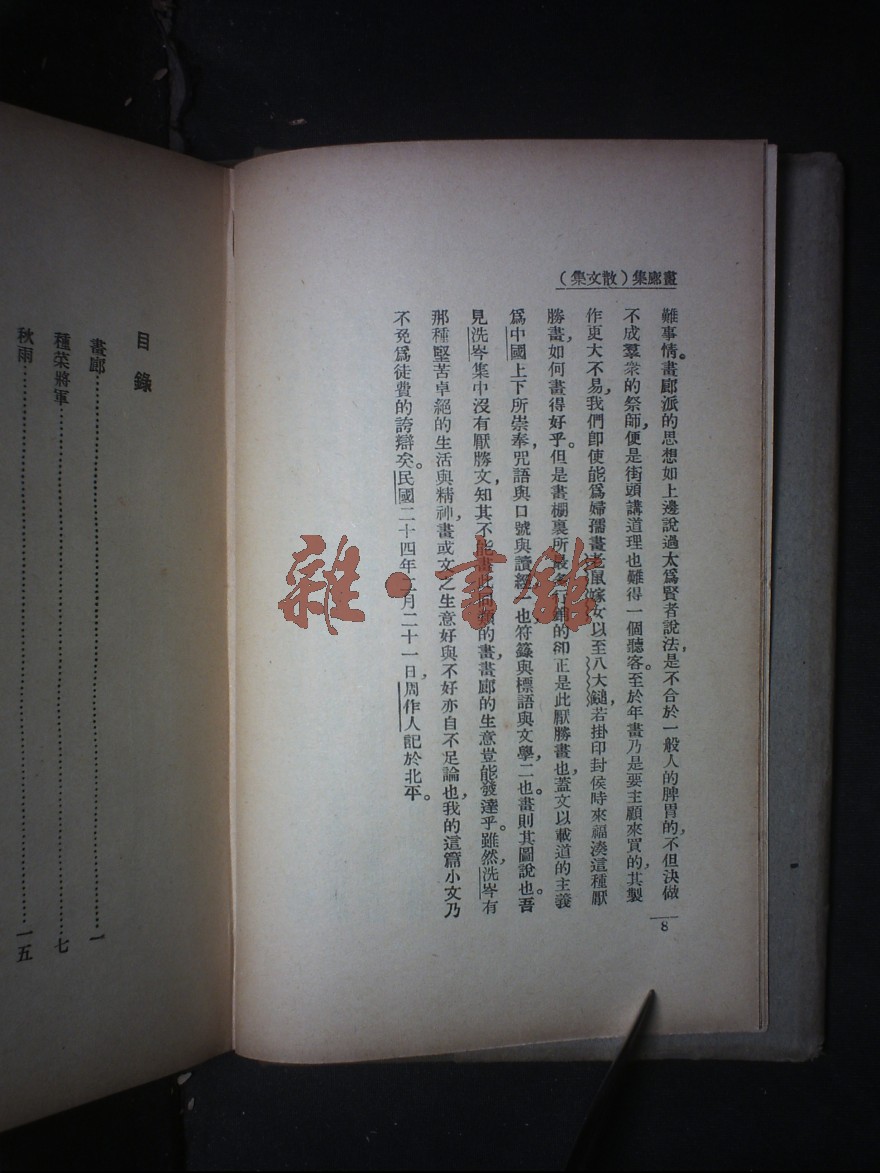 畫廊集（散文集）
難事情。畫廊派的思想如上邊說過太爲賢者說法，是不合於一般人的脾胃的，不但決做
不成羣衆的祭師，便是街頭講道理也難得一個聽客。至於年畫乃是要主顧來買的，其製
作更大不易，我們即使能爲婦孺畫老鼠嫁女以至八大鎚，若掛印封侯時來福湊這種厭
勝畫，如何畫得好乎。但是畫棚裏所最多行銷的卻正是此厭勝畫也，蓋文以載道的主義
爲中國上下所崇奉，咒語與口號與讀經，一也，符籙與標語與文學，二也。畫則其圖說也。吾
見洗岑集中沒有厭勝文，知其不能畫此同類的畫，畫廊的生意豈能發達乎。雖然，洗岑有
那種堅苦卓絕的生活與精神，畫或文之生意好與不好亦自不足論也，我的這篇小文乃
不免爲徒費的誇辯矣。民國二十四年二月二十一日，周作人記於北平。
8
目錄
畫廊……一
種菜將軍……七
秋雨……一五
雜·書館